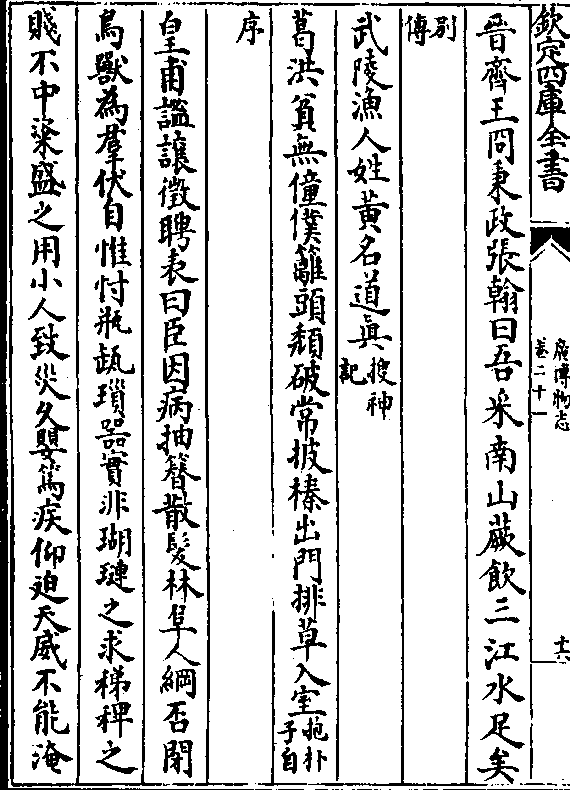 欽定四庫全書
廣博物志
卷二十一
十六
晉齊王冏秉政張翰曰吾采南山蕨飲三江水足矣
别傳
武陵漁人姓黄名道真搜神記
葛洪貧無僮僕籬頭頽破常披榛出門排草入室抱朴子自
序
皇甫謐讓徵聘表曰臣因病抽簪散髮林阜人綱否閉
鳥獸為羣伏自惟忖瓶甌瑣器實非瑚璉之求稊稗之
賤不中粢盛之用小人致災久嬰篤疾仰迫天威不能淹